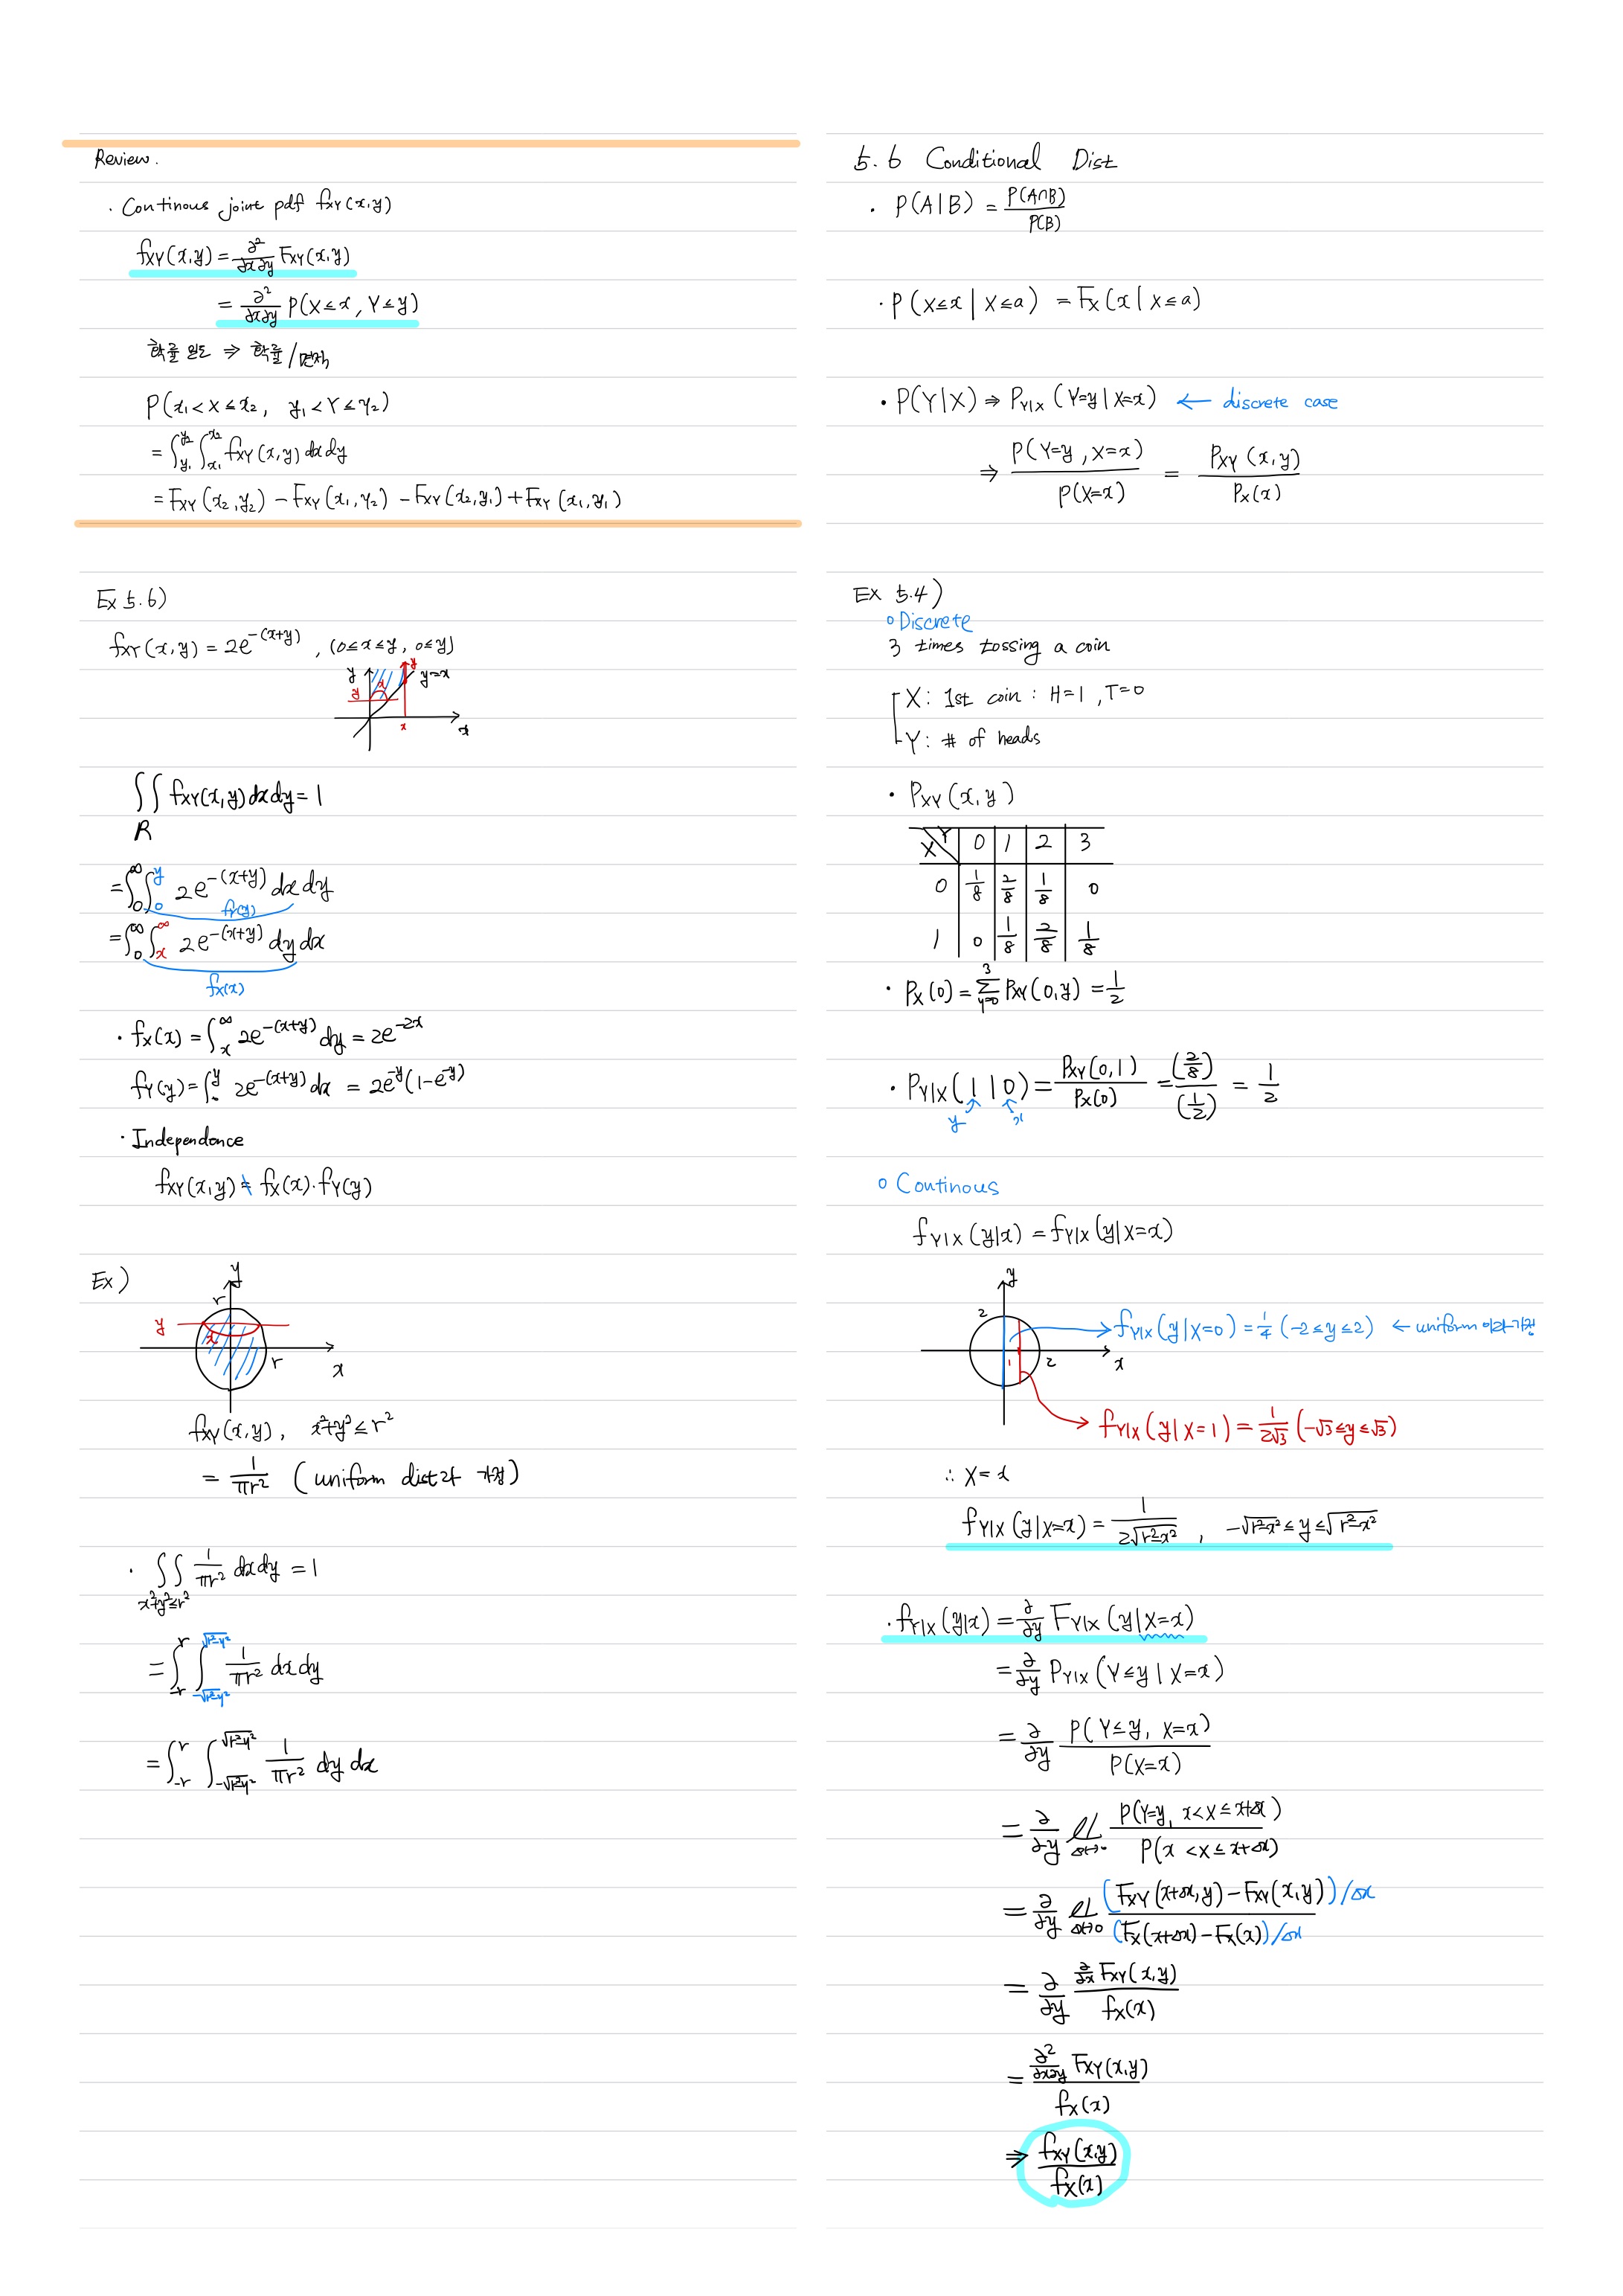 Review.
· Continous joint pdf fXY(x,y)
fXY(x,y) = ∂²/∂x∂y FXY(x,y)
= ∂²/∂x∂y P(X≤x, Y≤y)
확률 밀도 ⇒ 확률/면적
P(x₁<X≤x₂, y₁<Y≤y₂)
= ∫_y₁^y₂ ∫_x₁^x₂ fXY(x,y) dxdy
= FXY(x₂,y₂) - FXY(x₁,y₂) - FXY(x₂,y₁) + FXY(x₁,y₁)
Ex 5.6)
fXY(x,y) = 2e^-(x+y) , (0≤x≤y, 0≤y)
y y
y x y=x
x x
∬ fXY(x,y) dxdy = 1
R
= ∫_0^∞ ∫_0^y 2e^-(x+y) dx dy
fY(y)
= ∫_0^∞ ∫_x^∞ 2e^-(x+y) dy dx
fX(x)
· fX(x) = ∫_x^∞ 2e^-(x+y) dy = 2e^-2x
fY(y) = ∫_0^y 2e^-(x+y) dx = 2e^-y(1-e^-y)
· Independence
fXY(x,y) ≠ fX(x)·fY(y)
Ex)
y
r
y
x
r
x
fXY(x,y), x²+y²≤r²
= 1/πr² (uniform dist라 가정)
· ∬ 1/πr² dxdy = 1
x²+y²≤r²
= ∫_-r^r ∫_-√(r²-y²)^√(r²-y²) 1/πr² dx dy
= ∫_-r^r ∫_-√(r²-y²)^√(r²-y²) 1/πr² dy dx
5.6 Conditional Dist
· P(A|B) = P(A∩B)/P(B)
· P(X≤x | X≤a) = FX(x | X≤a)
· P(Y|X) ⇒ PY|X (Y=y | X=x) ← discrete case
⇒ P(Y=y, X=x)/P(X=x) = PXY(x,y)/PX(x)
EX 5.4)
○ Discrete
3 times tossing a coin
X: 1st coin : H=1, T=0
Y: # of heads
· PXY(x,y)
X Y 0 1 2 3
0 1/8 2/8 1/8 0
1 0 1/8 2/8 1/8
· PX(0) = Σ_y=0^3 PXY(0,y) = 1/2
· PY|X(1|0) = PXY(0,1)/PX(0) = (2/8)/(1/2) = 1/2
y x
○ Continous
fY|X(y|x) = fY|X(y|X=x)
y
2
fY|X(y|X=0) = 1/4 (-2≤y≤2) ← uniform 이라 가정
1 2 x
fY|X(y|X=1) = 1/2√3 (-√3≤y≤√3)
∴ X=x
fY|X(y|X=x) = 1/2√(r²-x²) , -√(r²-x²)≤y≤√(r²-x²)
· fY|X(y|x) = ∂/∂y FY|X(y|X=x)
= ∂/∂y PY|X(Y≤y | X=x)
= ∂/∂y P(Y≤y, X=x)/P(X=x)
= ∂/∂y lim_Δx→0 P(Y=y, x<X≤x+Δx)/P(x<X≤x+Δx)
= ∂/∂y lim_Δx→0 (FXY(x+Δx,y) - FXY(x,y))/Δx / (FX(x+Δx) - FX(x))/Δx
= ∂/∂y ∂/∂x FXY(x,y) / fX(x)
= ∂²/∂x∂y FXY(x,y) / fX(x)
⇒ fXY(x,y)/fX(x)